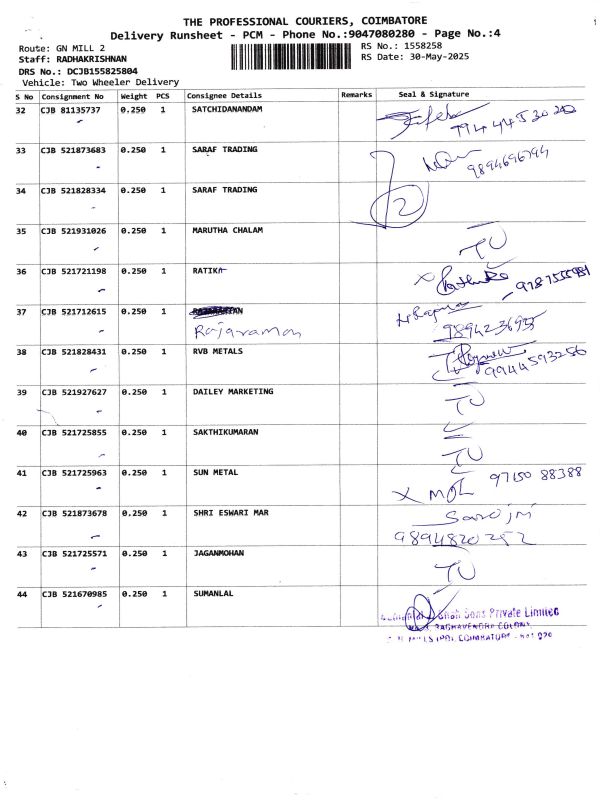 THE PROFESSIONAL COURIERS, COIMBATORE
Delivery Runsheet - PCM - Phone No.:9047080280 - Page No.:4
Route: GN MILL 2
RS No.: 1558258
Staff: RADHAKRISHNAN
RS Date: 30-May-2025
DRS No.: DCJB155825804
Vehicle: Two Wheeler Delivery
S No Consignment No Weight PCS Consignee Details Remarks Seal & Signature
32 CJB 81135737 0.250 1 SATCHIDANANDAM
33 CJB 521873683 0.250 1 SARAF TRADING
9894696794
34 CJB 521828334 0.250 1 SARAF TRADING
2
35 CJB 521931026 0.250 1 MARUTHA CHALAM
TU
36 CJB 521721198 0.250 1 RATIKA
37 CJB 521712615 0.250 1
Rajaraman
38 CJB 521828431 0.250 1 RVB METALS
9944593256
39 CJB 521927627 0.250 1 DAILEY MARKETING
TU
40 CJB 521725855 0.250 1 SAKTHIKUMARAN
TU
41 CJB 521725963 0.250 1 SUN METAL
97150 88388
42 CJB 521873678 0.250 1 SHRI ESWARI MAR
Sarojni
9894820252
43 CJB 521725571 0.250 1 JAGANMOHAN
TU
44 CJB 521670985 0.250 1 SUMANLAL
Sons Private Limited
RAGHAVENDRA COLONY